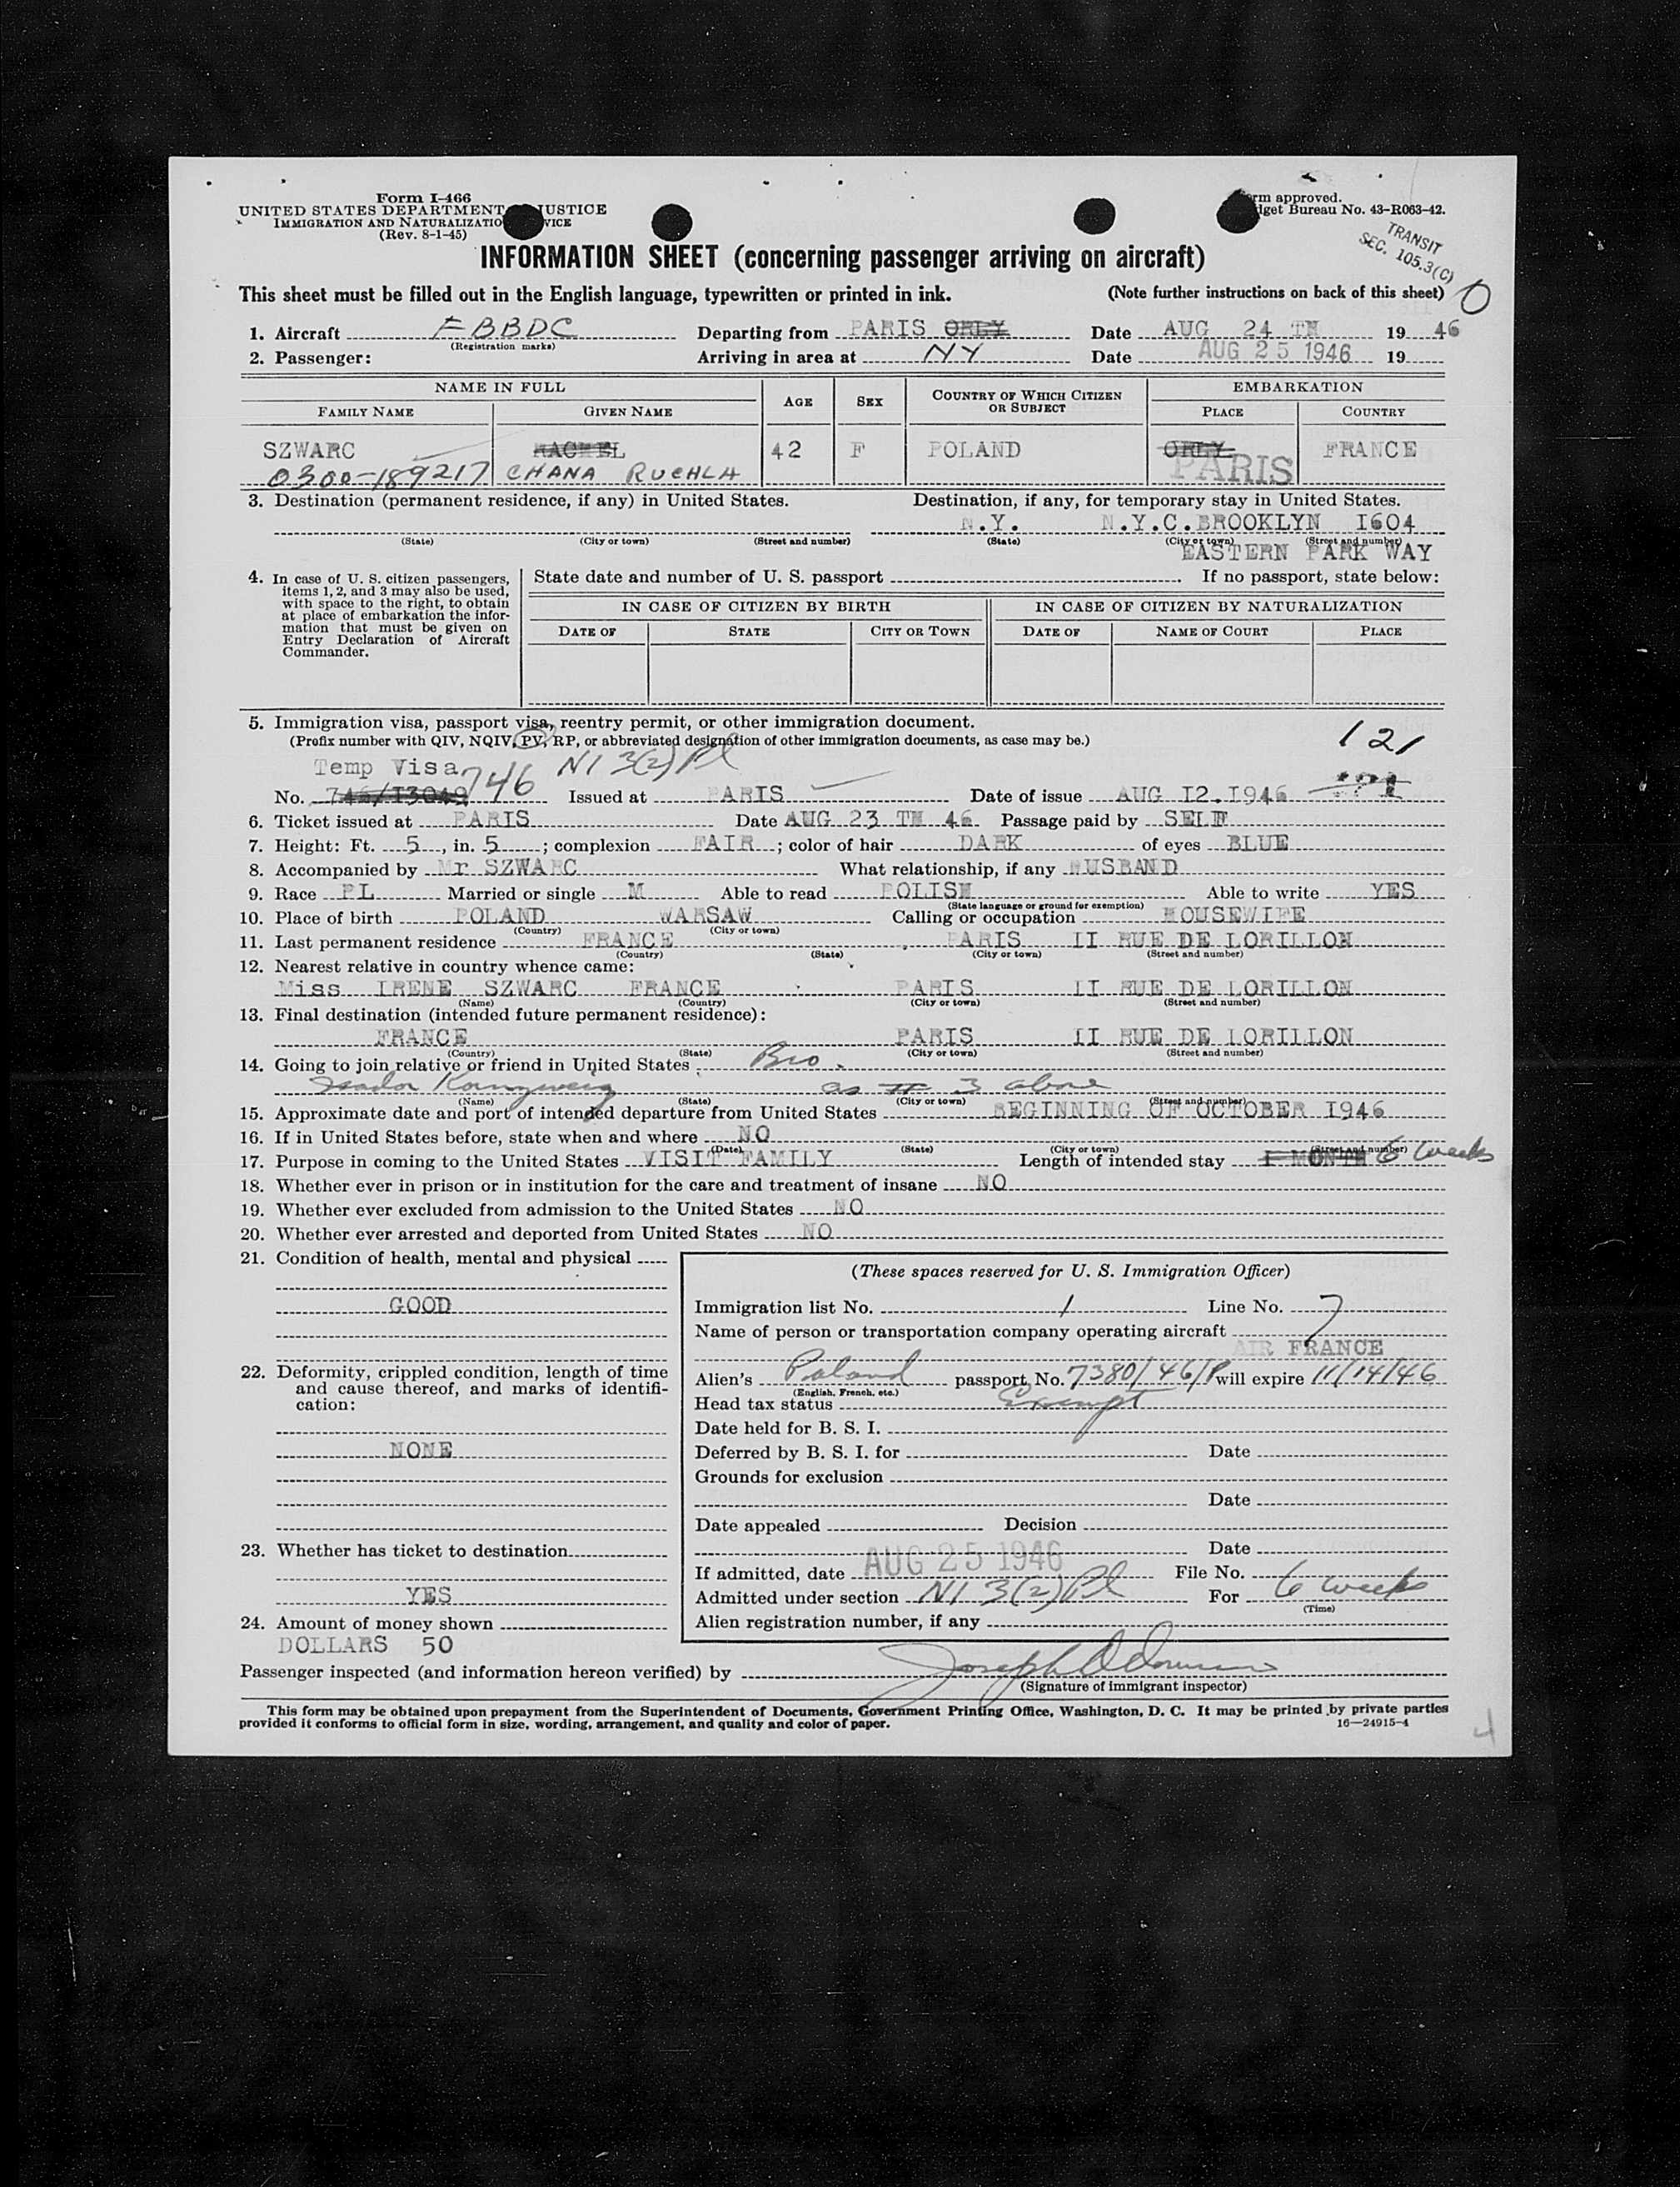 Form I-466
UNITED STATES DEPARTMENT JUSTICE
IMMIGRATION AND NATURALIZATIO VICE
(Rev. 8-1-45)
rm approved.
dget Bureau No. 43-R063-42.
TRANSIT
SEC. 105.3(C)
INFORMATION SHEET (concerning passenger arriving on aircraft)
This sheet must be filled out in the English language, typewritten or printed in ink. (Note further instructions on back of this sheet) O
1. Aircraft FBBDC Departing from PARIS ORLY Date AUG 24 TH 19 46
(Registration marks)
2. Passenger: Arriving in area at NY Date AUG 25 1946 19
NAME IN FULL AGE SEX COUNTRY OF WHICH CITIZEN OR SUBJECT EMBARKATION
FAMILY NAME GIVEN NAME PLACE COUNTRY
SZWARC RACHEL 42 F POLAND ORLY FRANCE
0300-189217 CHANA RUCHLA PARIS
3. Destination (permanent residence, if any) in United States. Destination, if any, for temporary stay in United States.
N.Y. N.Y.C.BROOKLYN I604
(State) (City or town) (Street and number) (State) (City or town) (Street and number)
EASTERN PARK WAY
4. In case of U. S. citizen passengers, items 1, 2, and 3 may also be used, with space to the right, to obtain at place of embarkation the information that must be given on Entry Declaration of Aircraft Commander.
State date and number of U. S. passport . If no passport, state below:
IN CASE OF CITIZEN BY BIRTH IN CASE OF CITIZEN BY NATURALIZATION
DATE OF STATE CITY OR TOWN DATE OF NAME OF COURT PLACE
5. Immigration visa, passport visa, reentry permit, or other immigration document.
(Prefix number with QIV, NQIV, PV, RP, or abbreviated designation of other immigration documents, as case may be.) 121
Temp Visa 746 NI 3(2) Pl
No. 746/I3049 Issued at PARIS Date of issue AUG I2.I946 121
6. Ticket issued at PARIS Date AUG 23 TH 46 Passage paid by SELF
7. Height: Ft. 5, in. 5; complexion FAIR; color of hair DARK of eyes BLUE
8. Accompanied by Mr SZWARC What relationship, if any HUSBAND
9. Race PL Married or single M Able to read POLISH Able to write YES
(State language or ground for exemption)
10. Place of birth POLAND WARSAW Calling or occupation HOUSEWIFE
(Country) (City or town)
11. Last permanent residence FRANCE PARIS II RUE DE LORILLON
(Country) (State) (City or town) (Street and number)
12. Nearest relative in country whence came:
Miss IRENE SZWARC FRANCE PARIS II RUE DE LORILLON
(Name) (Country) (City or town) (Street and number)
13. Final destination (intended future permanent residence):
FRANCE PARIS II RUE DE LORILLON
(Country) (State) (City or town) (Street and number)
14. Going to join relative or friend in United States Bro.
Isador as # 3 above
(Name) (State) (City or town) (Street and number)
15. Approximate date and port of intended departure from United States BEGINNING OF OCTOBER I946
16. If in United States before, state when and where NO
(Date) (State) (City or town) (Street and number)
17. Purpose in coming to the United States VISIT FAMILY Length of intended stay I MONTH 6 weeks
18. Whether ever in prison or in institution for the care and treatment of insane NO
19. Whether ever excluded from admission to the United States NO
20. Whether ever arrested and deported from United States NO
21. Condition of health, mental and physical
GOOD
22. Deformity, crippled condition, length of time and cause thereof, and marks of identification:
NONE
23. Whether has ticket to destination
YES
24. Amount of money shown
DOLLARS 50
(These spaces reserved for U. S. Immigration Officer)
Immigration list No. 1 Line No. 7
Name of person or transportation company operating aircraft
AIR FRANCE
Alien's Poland passport No. 7380/46/P will expire 11/14/46
(English, French, etc.)
Head tax status Exempt
Date held for B. S. I.
Deferred by B. S. I. for Date
Grounds for exclusion
Date
Date appealed Decision
Date
If admitted, date AUG 25 1946 File No.
Admitted under section NI 3(2) Pl For 6 weeks
(Time)
Alien registration number, if any
Passenger inspected (and information hereon verified) by
(Signature of immigrant inspector)
This form may be obtained upon prepayment from the Superintendent of Documents, Government Printing Office, Washington, D. C. It may be printed by private parties
provided it conforms to official form in size, wording, arrangement, and quality and color of paper. 16—24915-4
4